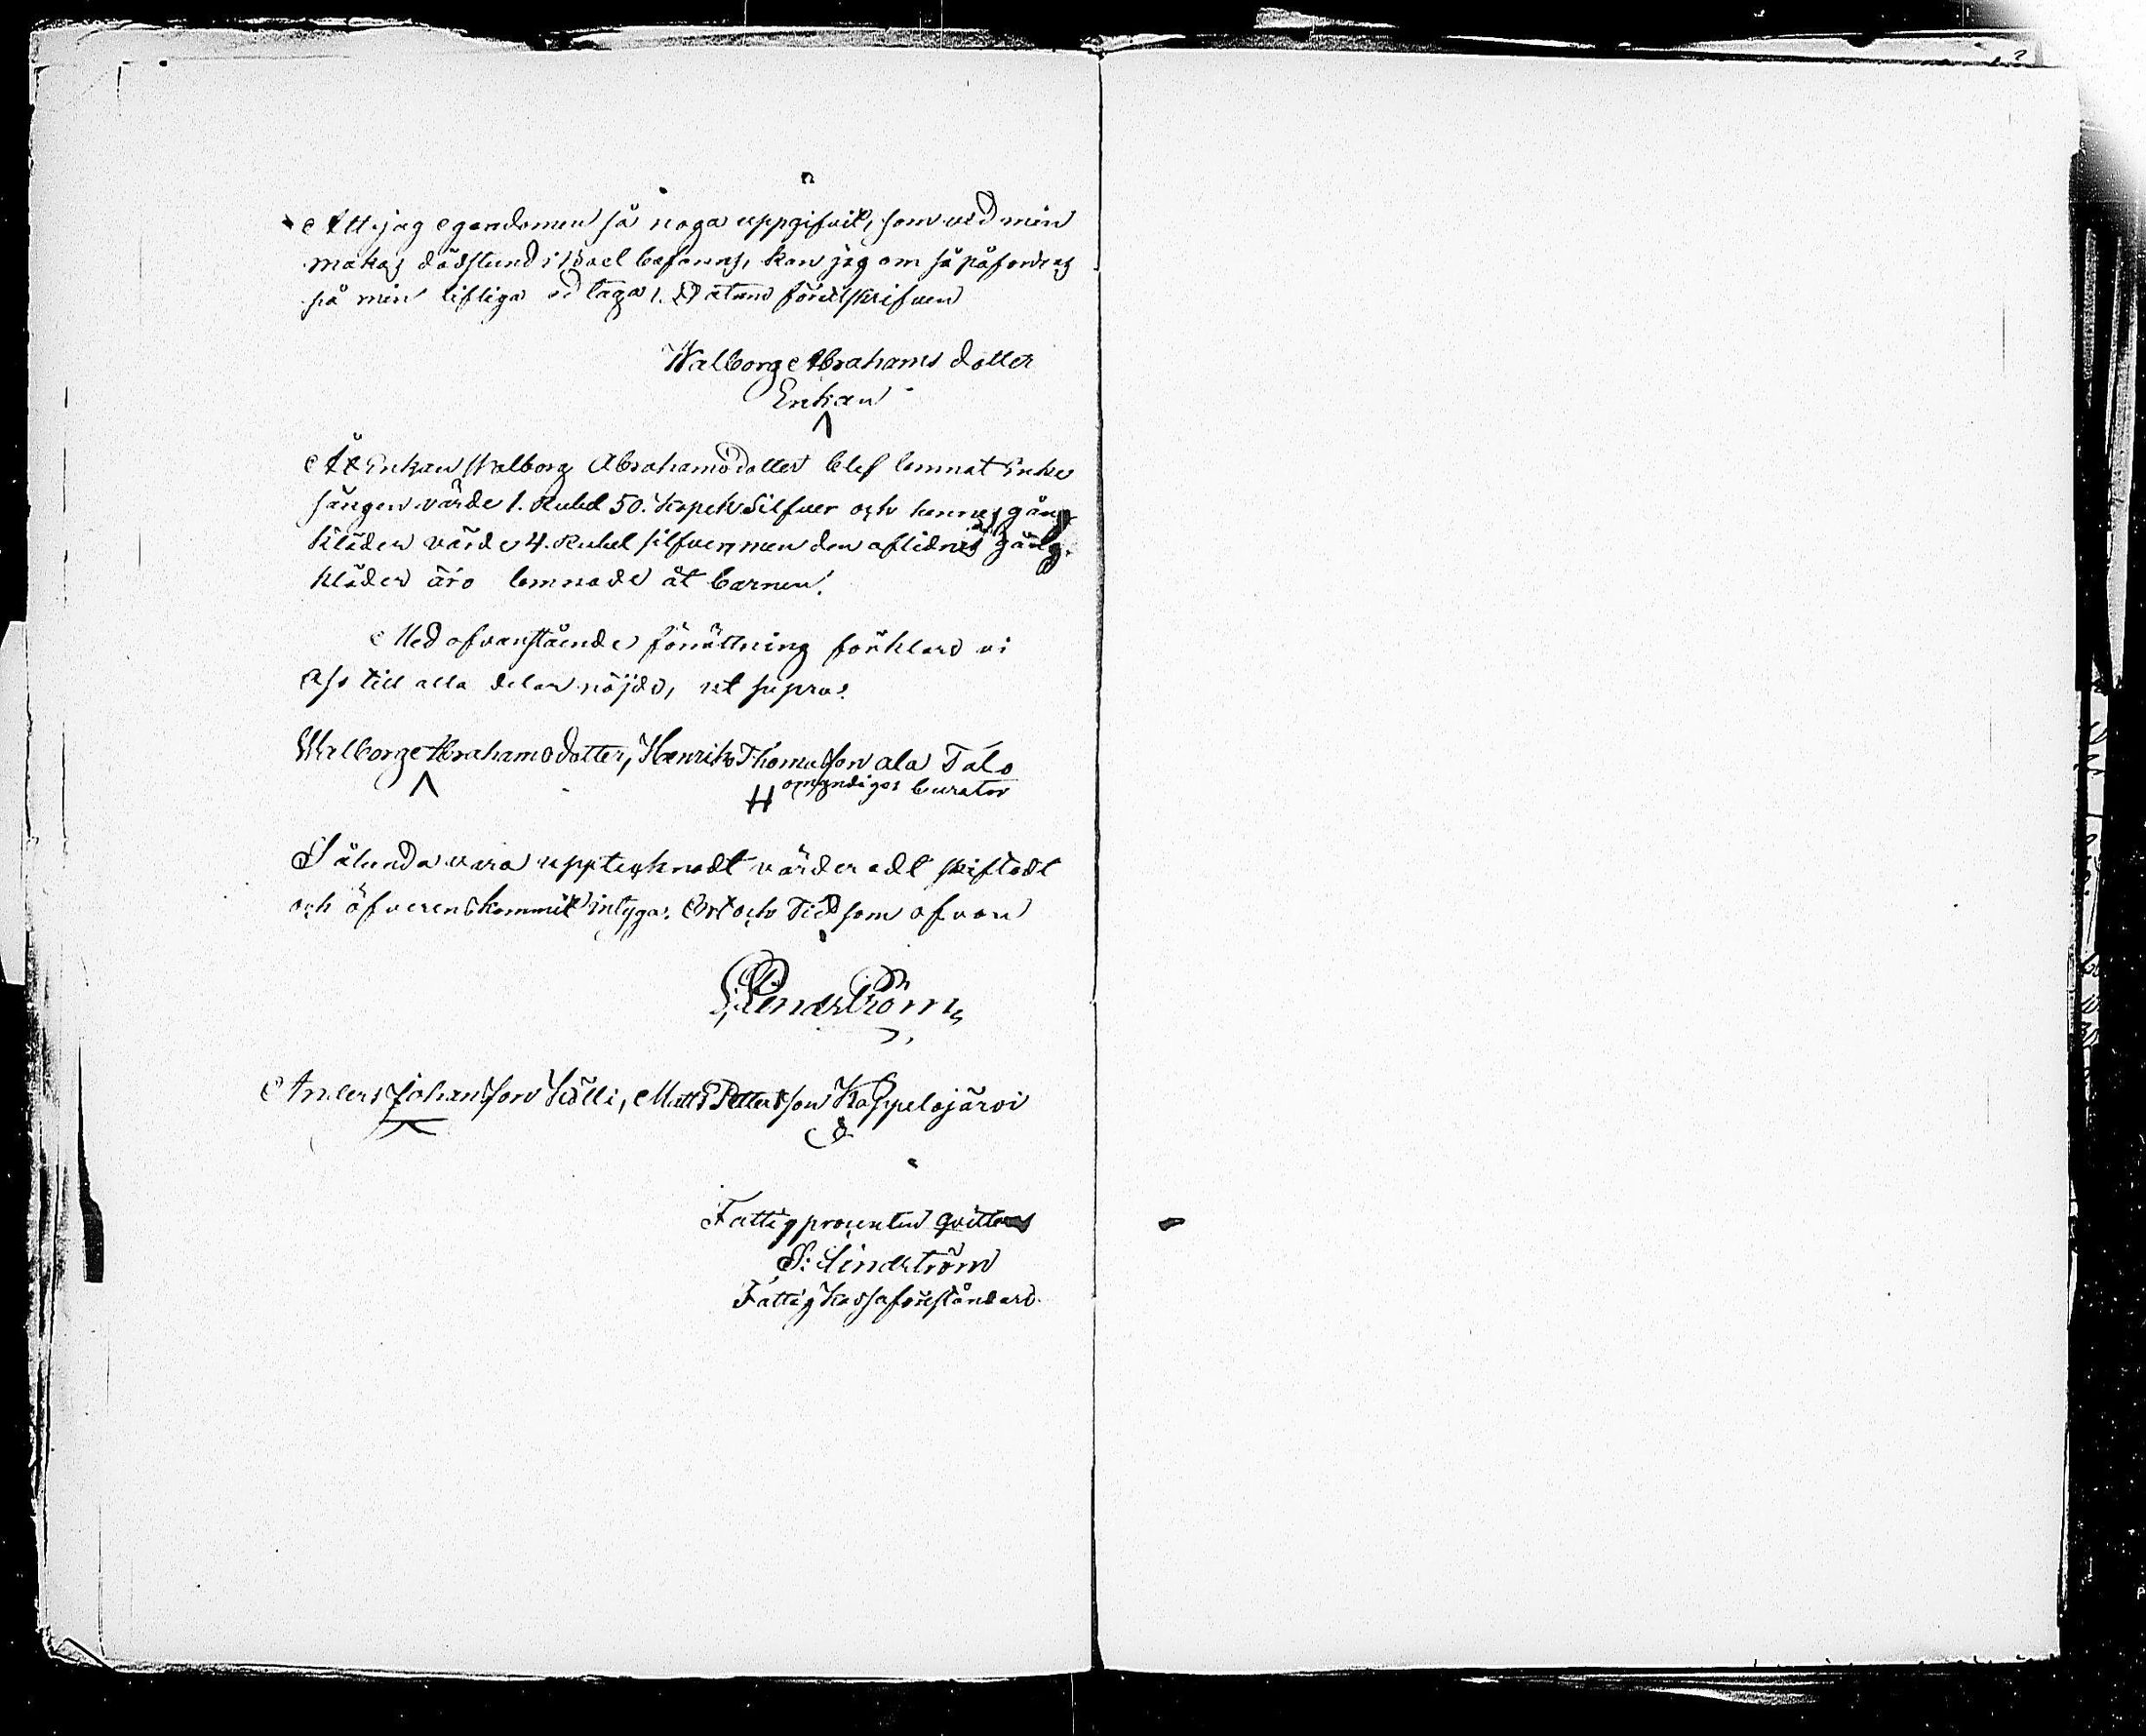 Att jag egendomen så noga uppgifvit, som vid min
makas dödstund i boet befanns, kan jag om så påfordras
på min lifliga ed taga. Datum förutskrifven
Walborg Abrahams dotter
Enkan
Att Enkan Walborg Abrahamsdotter blef lemnat Enke
sängen värde 1. Rubel 50. Kopek Silfver och hennes gång
kläder värde 4. Rubel silfver, men den aflidnes gång
kläder äro lemnade åt barnen.
Med ofvanstående förrättning förklara vi
oss till alla delar nöjde, ut supra.
Walborg Abrahamsdotter, Henrik Thomasson ala Talo
omyndigas Curator
Sålunda vara upptecknadt värderadt skiftadt
och öfverenskommit intyga. Ort och Tid som ofvan
S. Lindström
Anders Johansson Kölli, Matts Pettersson Kappelojärvi
Fattigprocenten qvitteras
S: Lindström
Fattigkassaföreståndare.